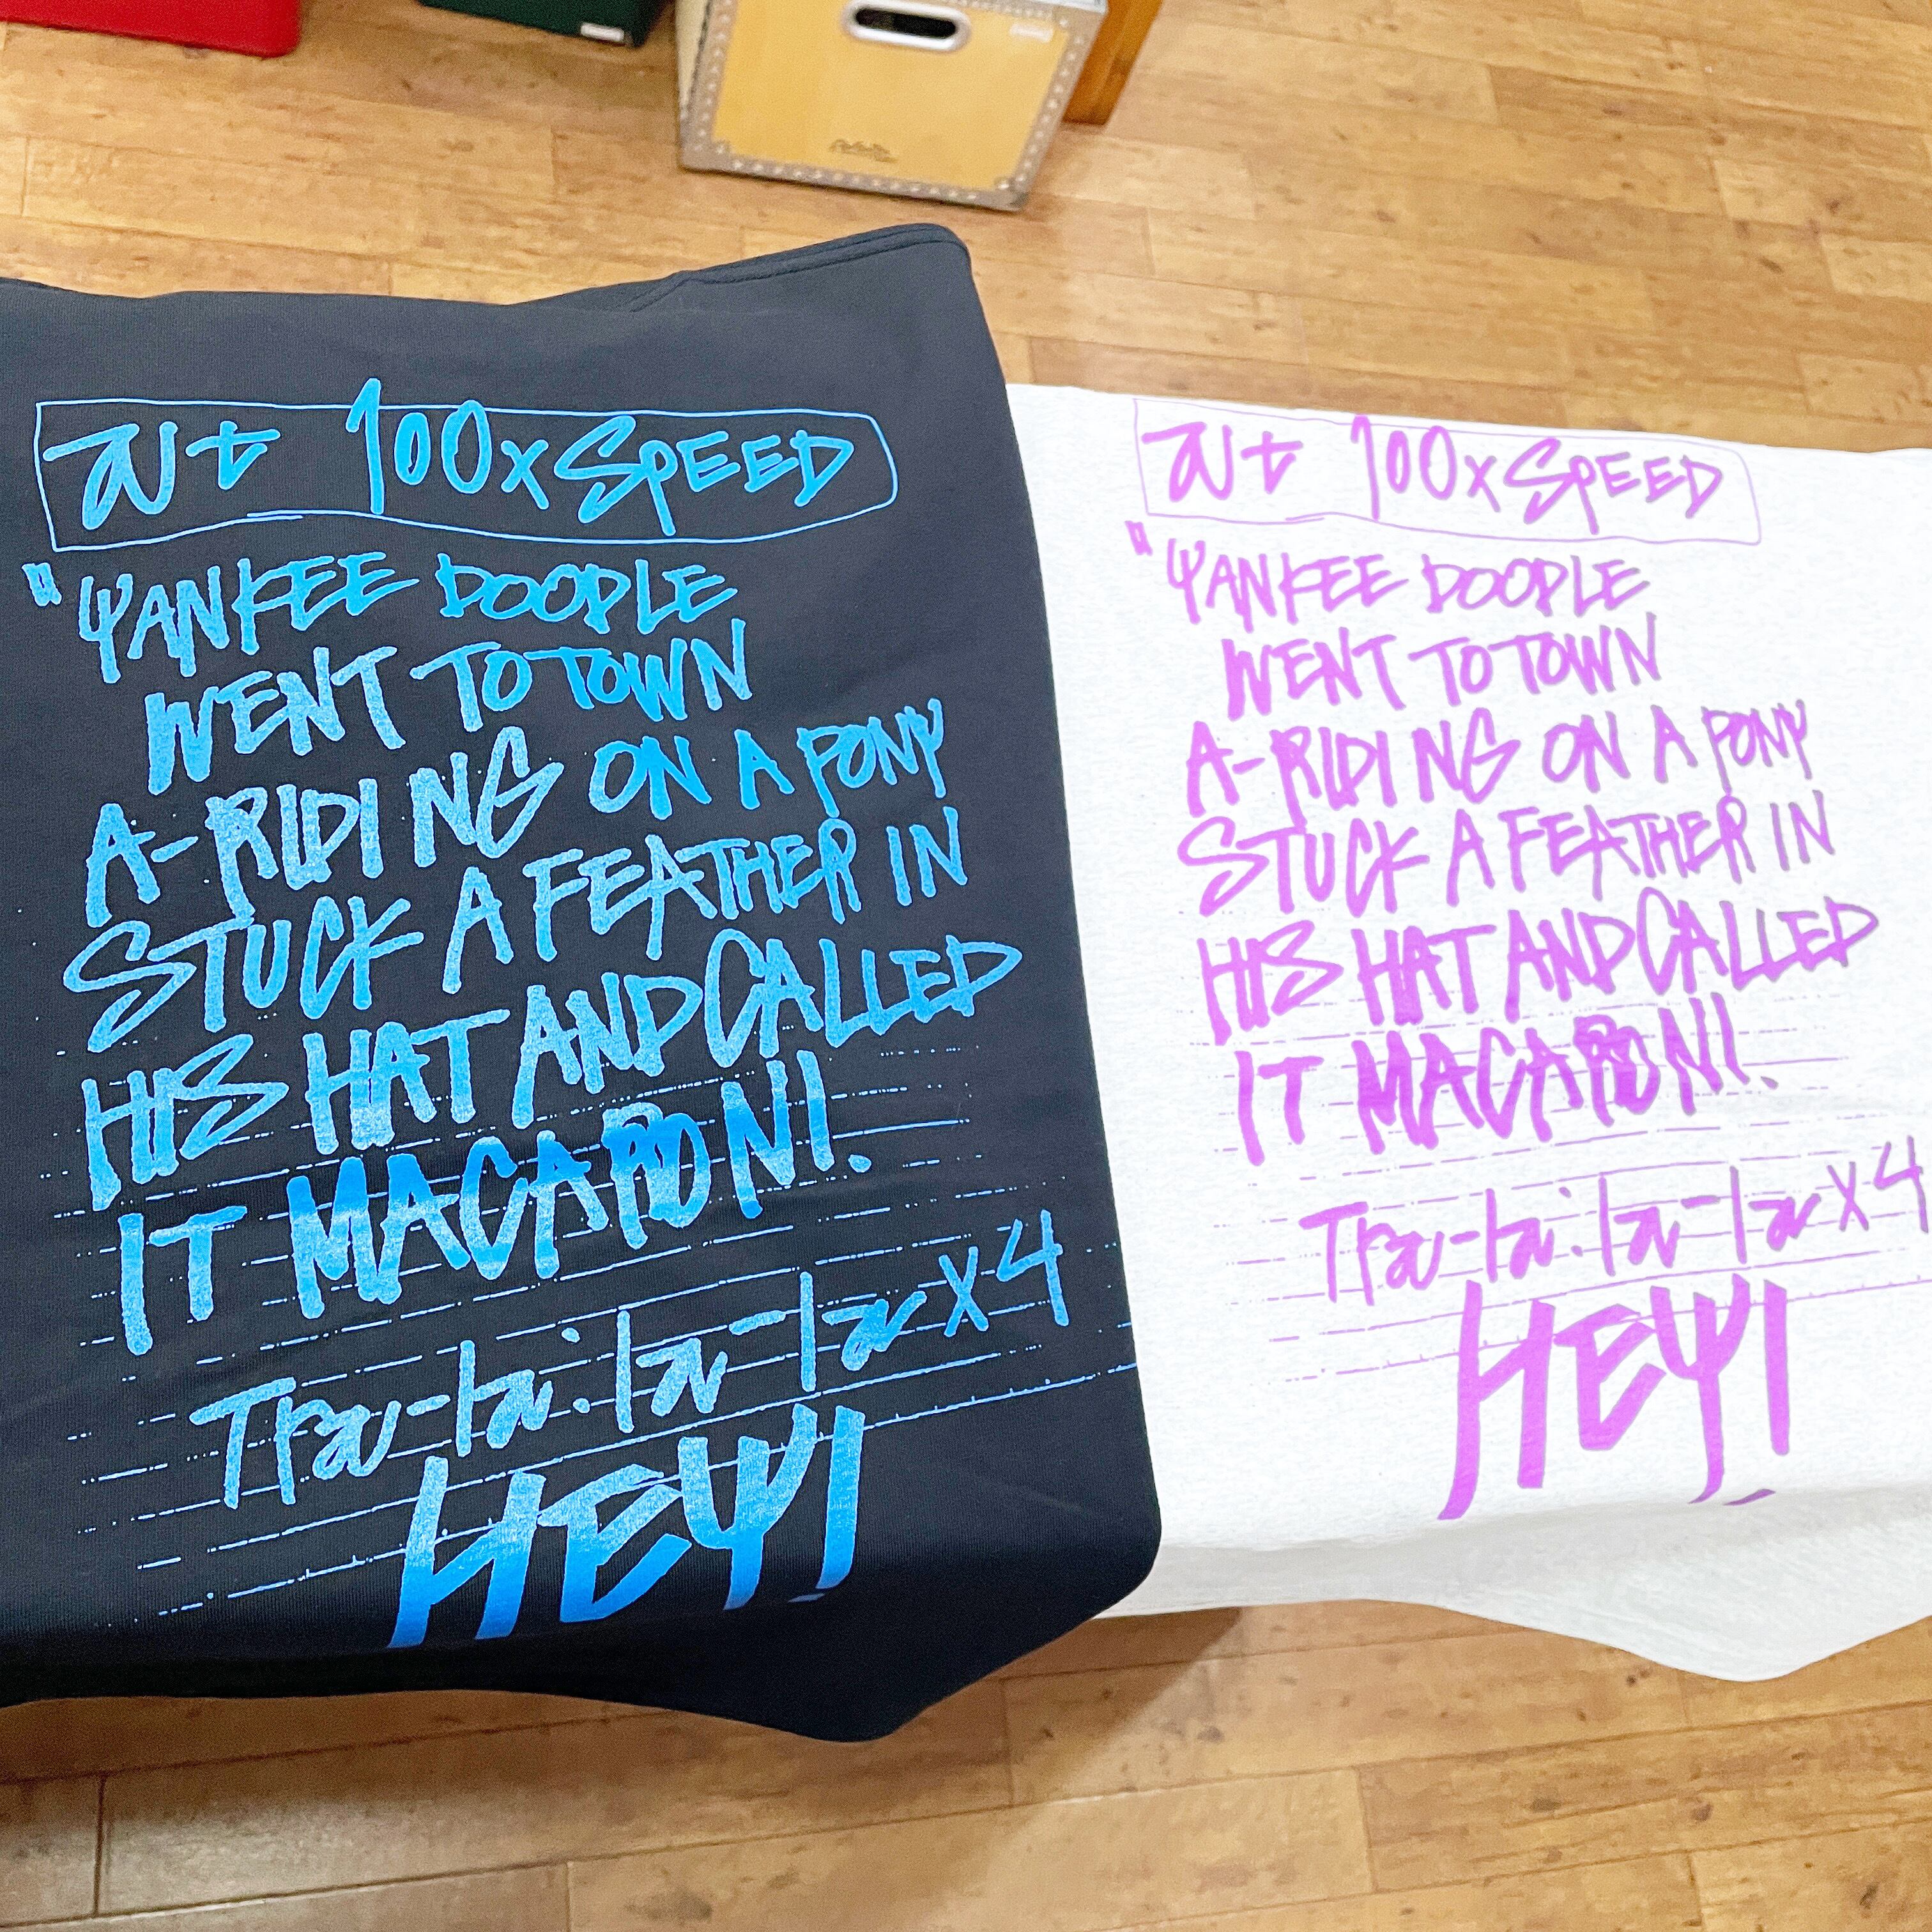 at 100x SPEED
"YANKEE DOODLE
WENT TO TOWN
A-RIDING ON A PONY
STUCK A FEATHER IN
HIS HAT AND CALLED
IT MACARONI.
Tra-la.la-la x4
HEY!
at 100x SPEED
"YANKEE DOODLE
WENT TO TOWN
A-RIDING ON A PONY
STUCK A FEATHER IN
HIS HAT AND CALLED
IT MACARONI.
Tra-la.la-la x4
HEY!